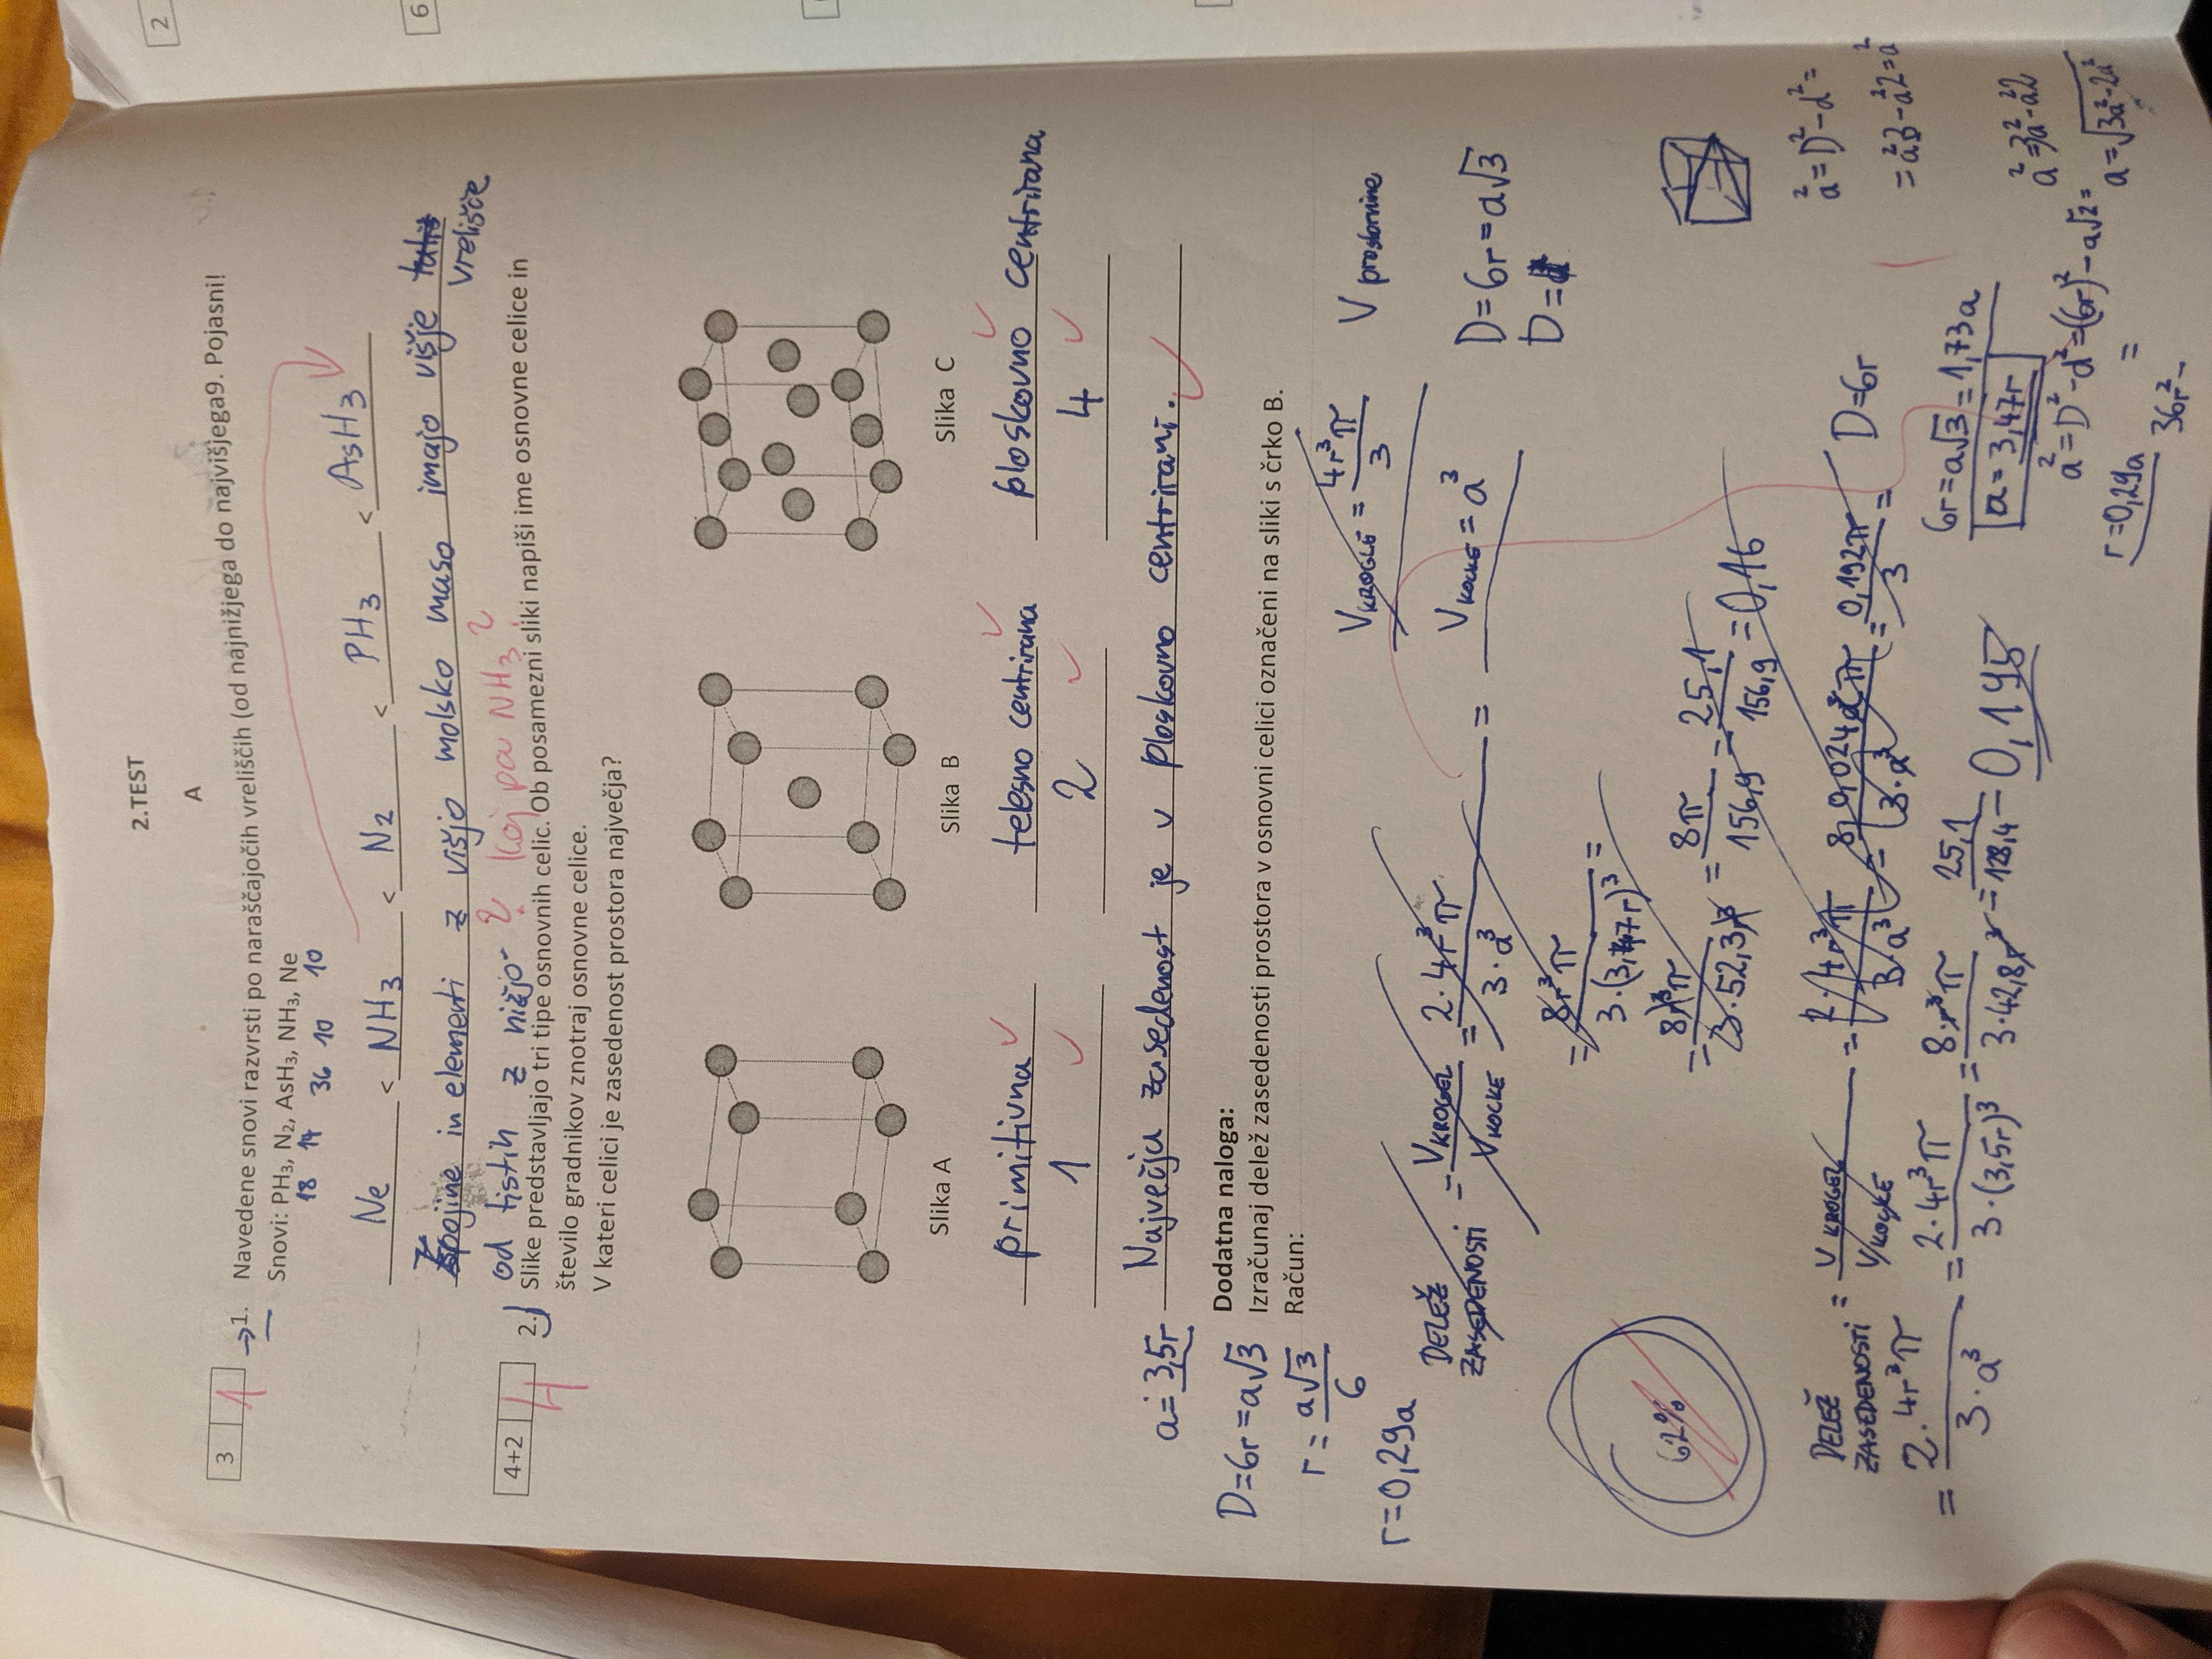 2.TEST
A
3 1
→1. Navedene snovi razvrsti po naraščajočih vreliščih (od najnižjega do najvišjega9. Pojasni!
Snovi: PH₃, N₂, AsH₃, NH₃, Ne
18 14 36 10 10
Ne < NH₃ < N₂ < PH₃ < AsH₃
Spojine in elementi z višjo molsko maso imajo višje
vrelišče
od tistih z nižjo ? Kaj pa NH₃?
4+2 4
2. Slike predstavljajo tri tipe osnovnih celic. Ob posamezni sliki napiši ime osnovne celice in
število gradnikov znotraj osnovne celice.
V kateri celici je zasedenost prostora največja?
Slika A Slika B Slika C
primitivna telesno centrirana ploskovno centrirana
1 2 4
a=3,5r Največja zasedenost je v ploskovno centrirani.
D=6r=a√3
Dodatna naloga:
Izračunaj delež zasedenosti prostora v osnovni celici označeni na sliki s črko B.
Račun:
r = a√3/6
r=0,29a
V KROGLE = 4r³π/3 V prostornine
DELEŽ ZASEDENOSTI = V KROGEL/V KOCKE = 2·4r³π/3·a³ =
V KOCKE = a³
D=6r=a√3
D=
= 8r³π/3·(3,47r)³ =
62%
= 8r³π/3·52,3r³ = 8π/156,9 = 25,1/156,9 = 0,16
DELEŽ ZASEDENOSTI = V KROGEL/V KOCKE = 2·4r³π/3·a³ = 8·0,024a³π/3·a³ = 0,192π/3 =
D=6r
a²=D²-d²=
=a²3-a²2=a²
= 2·4r³π/3·a³ = 2·4r³π/3·(3,5r)³ = 8·r³π/3·42,8r³ = 25,1/128,4 = 0,195
6r=a√3=1,73a
a=3,47r
a²=3a²-a²2
a²=D²-d²=(6r)²-a√2=
a=√3a²-2a²
r=0,29a =
36r²-
2
6